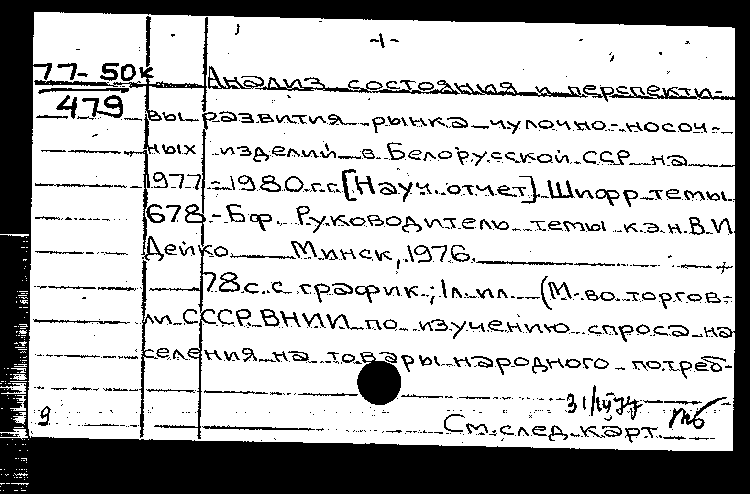 -1-
77-50к Анализ состояния и перспекти-
479 вы развития рынка чулочно-носоч-
ных изделий в Белорусской ССР на
1977-1980 г.г. [Науч. отчет]. Шифр темы
678-Бф. Руководитель темы к.э.н. В.И.
Дейко. Минск, 1976.
78 с. с график.; 1 л. ил. (М-во торгов-
ли СССР. ВНИИ по изучению спроса на-
селения на товары народного потреб-
9 См. след. карт.